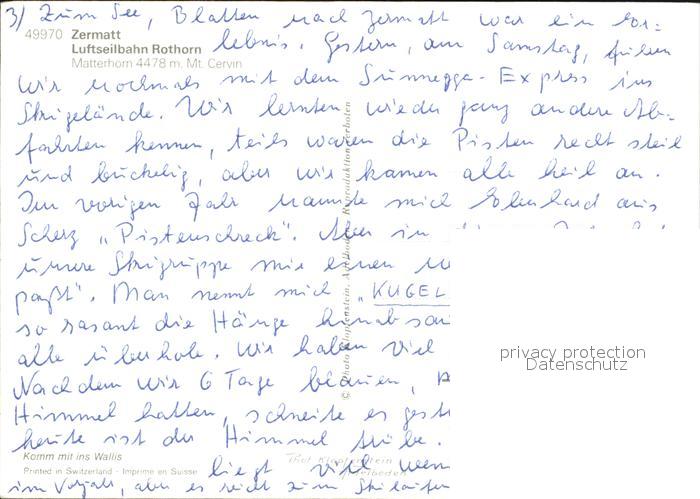 3) Zum See, Blatten nach Zermatt war ein Er-
49970 Zermatt
Luftseilbahn Rothorn
Matterhorn 4478 m, Mt. Cervin
lebnis. Gestern, am Samstag, fuhren
wir nochmals mit dem Sunnegga-Express ins
Skigelände. Wir lernten wieder ganz andere Ab-
fahrten kennen, teils waren die Pisten recht steil
und buckelig, aber wir kamen alle heil an.
Im vorigen Jahr nannte mich Ekkehard aus
Scherz „Pistenschreck". Aber in
unsere Skigruppe mir einen
paßt". Man nennt mich „KUGEL
so rasant die Hänge hinab
alle überhole. Wir haben viel
Nachdem wir 6 Tage blauen,
Himmel hatten, schneite es gest
heute ist der Himmel trübe.
Komm mit ins Wallis
Printed in Switzerland - Imprimé en Suisse
liegt viel wen
im Vorjahr, aber es reicht zum Skilaufen
© Photo Klopfenstein, Adelboden. Reproduktion verboten
Phot. Klopfenstein
Adelboden
privacy protection
Datenschutz